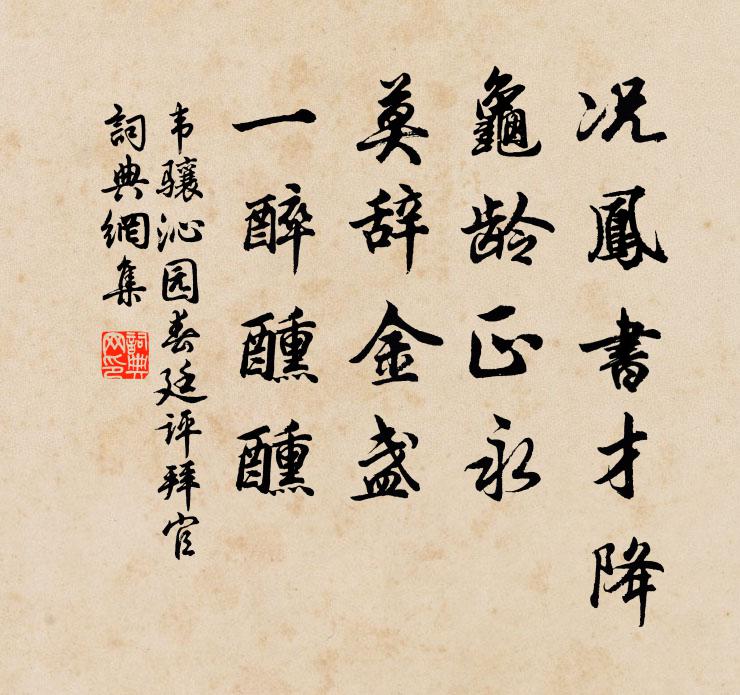 况鳳書才降
龜龄正永
莫辞金盏
一醉醺醺
韦骧沁园春廷评拜官
詞典網集
詞典网印